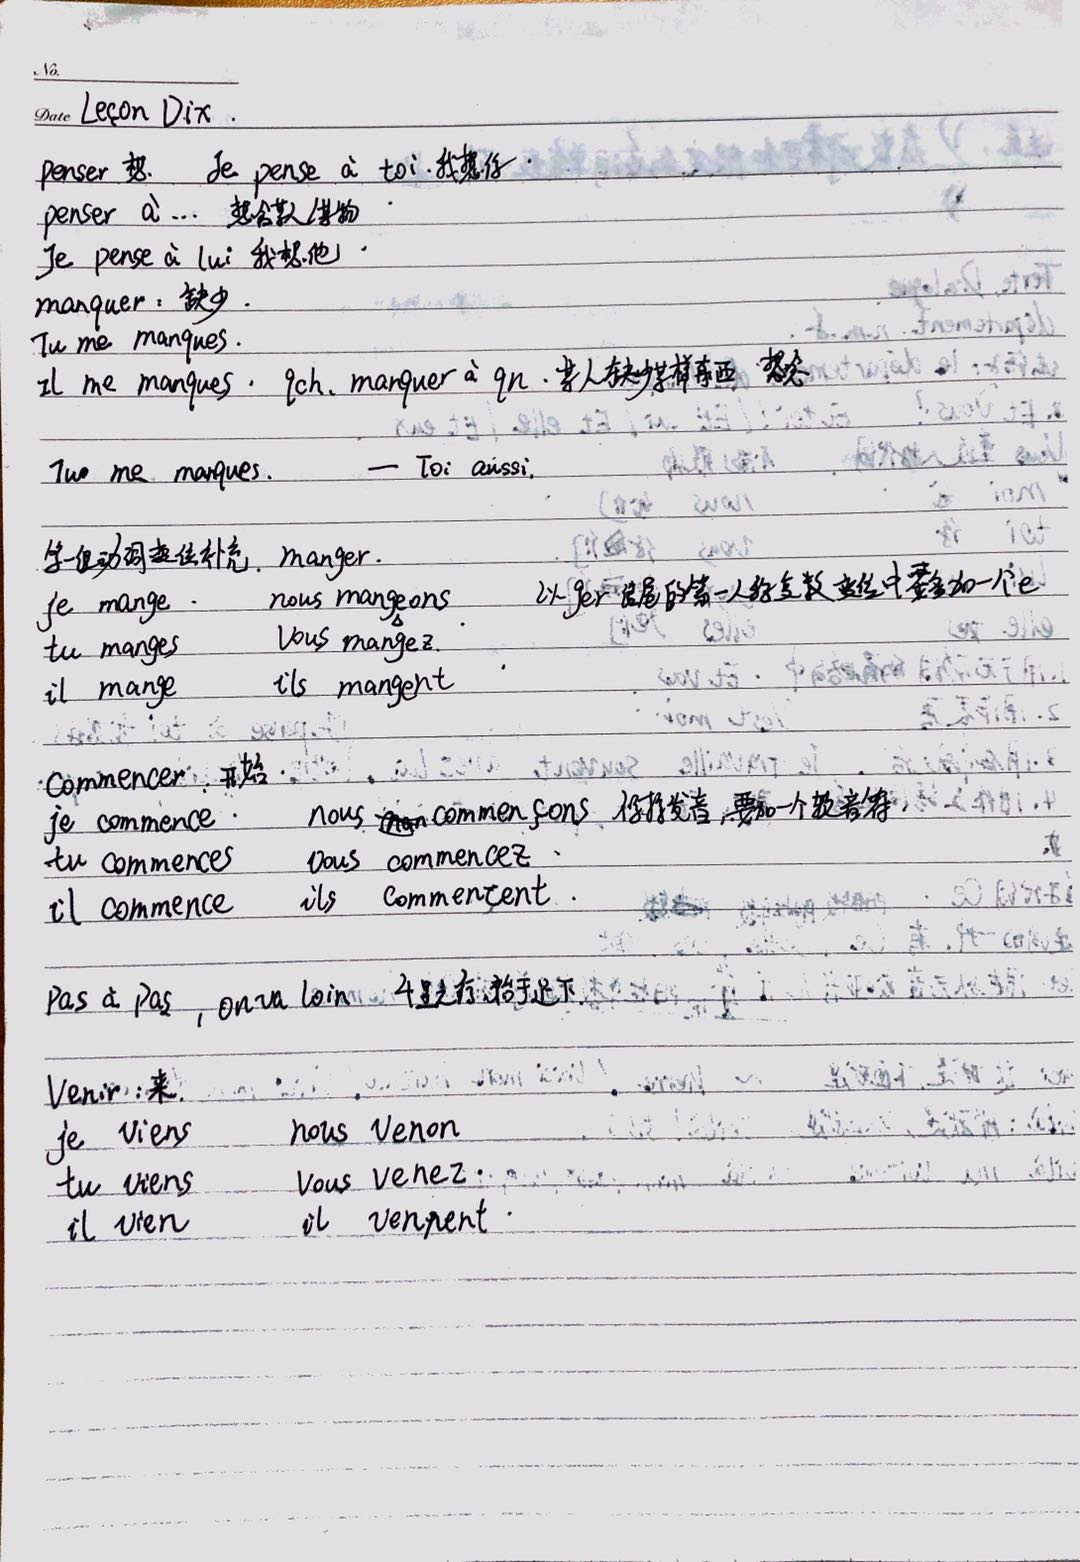 No.
Date Leçon Dix.
penser 想. Je pense à toi. 我想你.
penser à... 想念某人/某物
Je pense à lui 我想他.
manquer: 缺少.
Tu me manques.
Il me manques. qch. manquer à qn. 某人缺少某样东西 想念
Tu me manques. — Toi aussi.
第一组动词变位补充. manger.
je mange. nous mangeons 以ger结尾的第一人称复数变位中要加一个e
tu manges Vous mangez.
il mange ils mangent
Commencer: 开始.
je commence. nous commençons 保持发音,要加一个软音符.
tu commences Vous commencez.
il commence ils Commençent.
Pas à pas, on va loin 千里之行,始于足下.
Venir: 来.
je viens nous venon
tu viens Vous venez.
il vien il vennent.